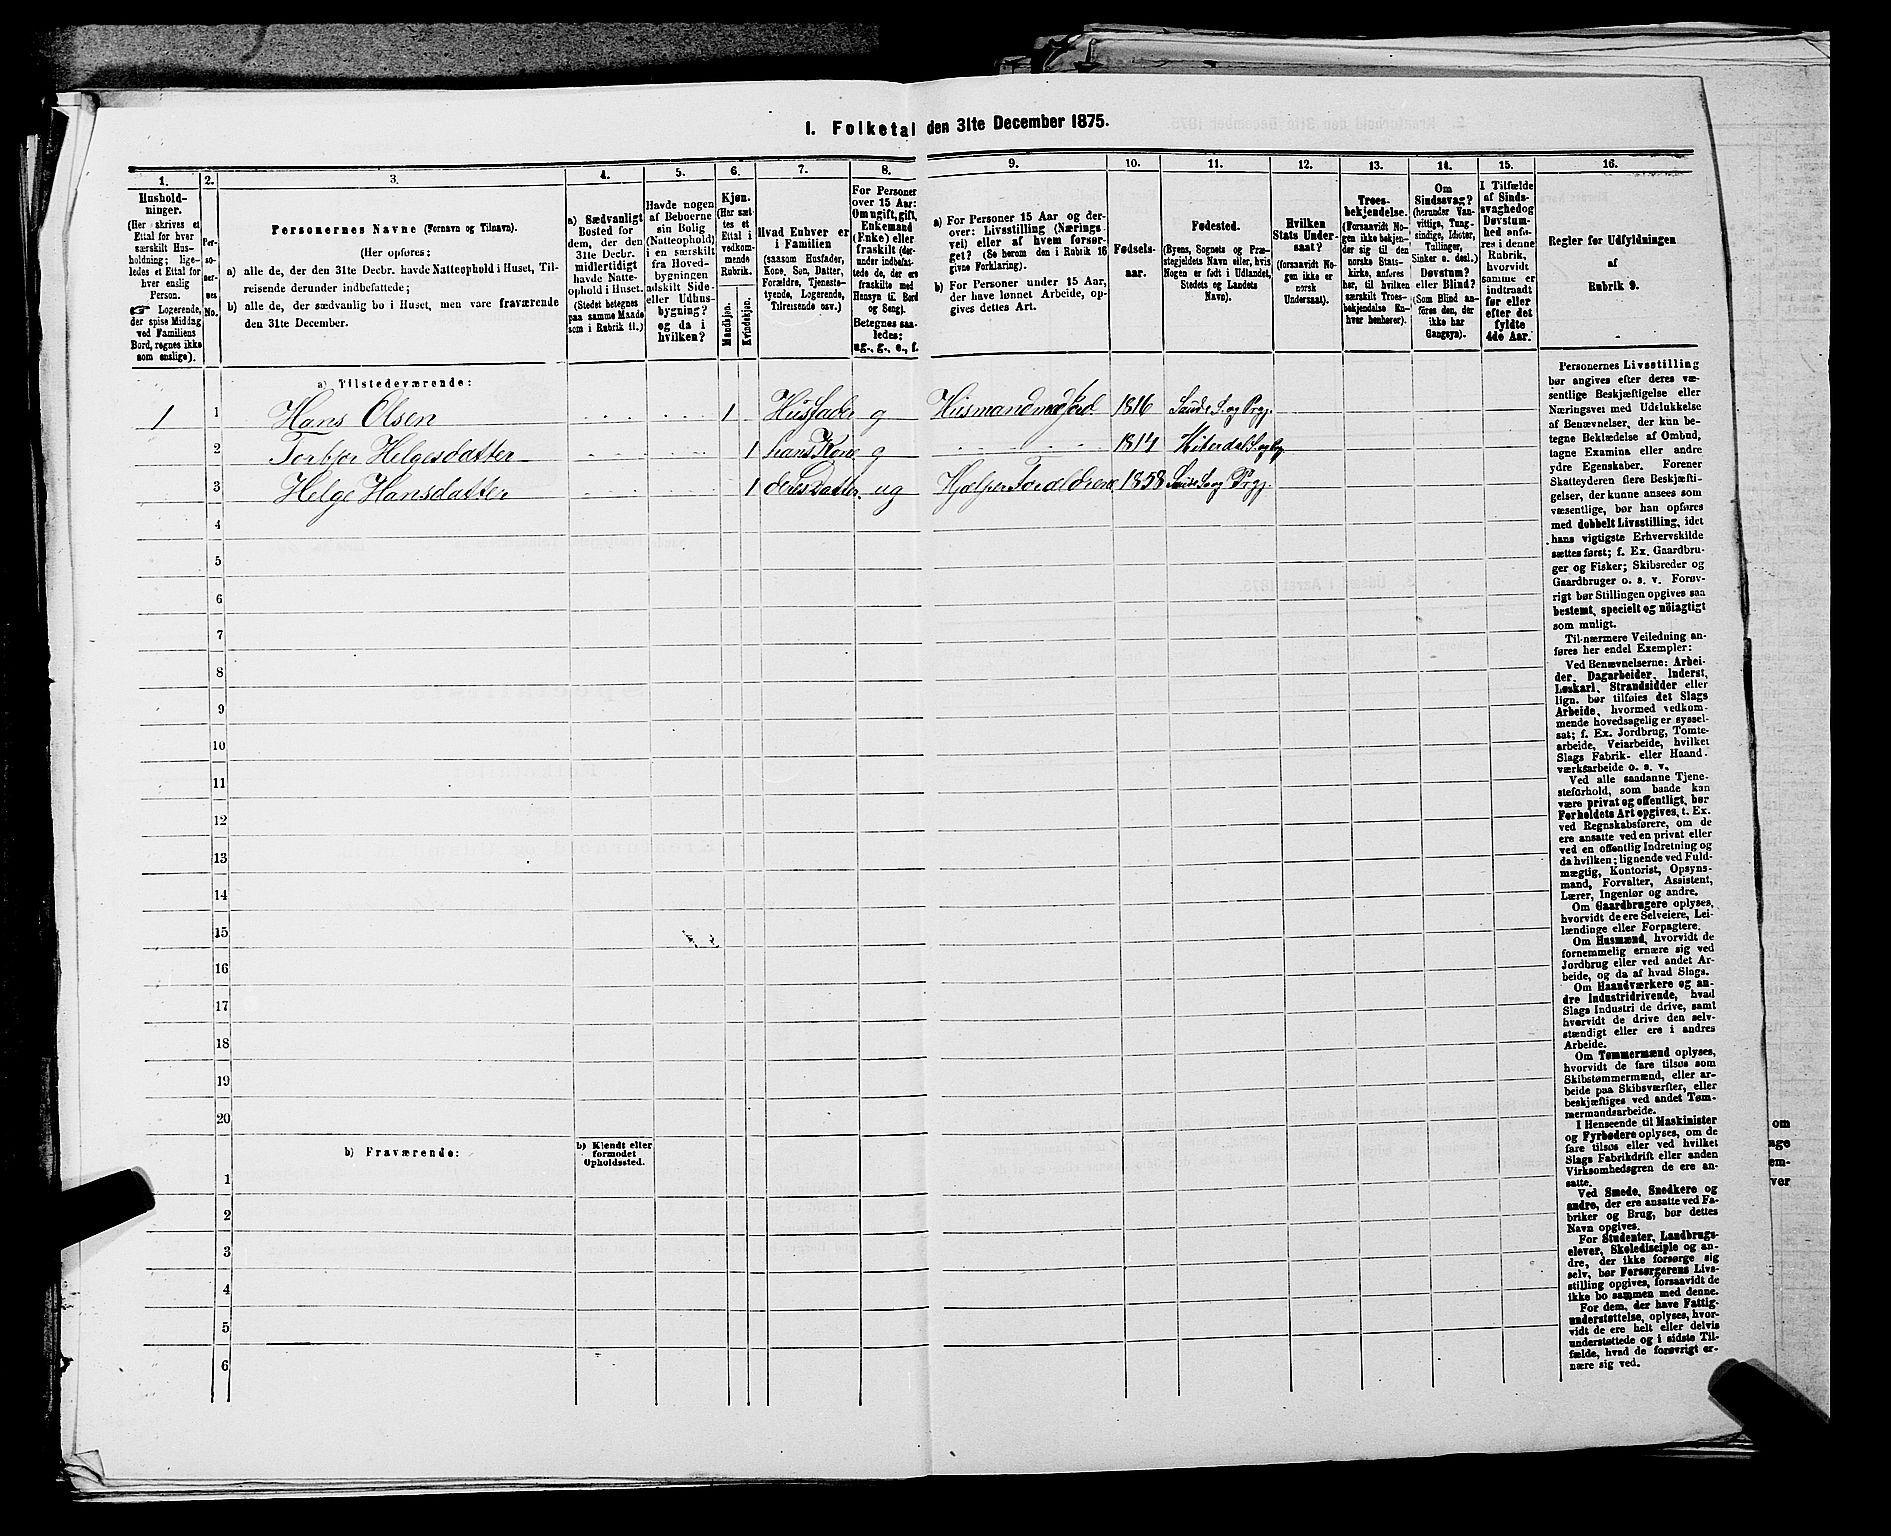 I. Folketal den 31te December 1875.
1. 2. 3. 4. 5. 6. 7. 8. 9. 10. 11. 12. 13. 14. 15. 16.
Hushold-
ninger.
(Her skrives et
Ettal for hver
særskilt Hus-
holdning; lige-
ledes et Ettal for
hver enslig
Person.
☞ Logerende,
der spise Middag
ved Familiens
Bord, regnes ikke
som enslige).
Per-
so-
ner-
nes
No.
Personernes Navne (Fornavn og Tilnavn).
(Her opføres:
a) alle de, der den 31te Decbr. havde Natteophold i Huset, Til-
reisende derunder indbefattede;
b) alle de, der sædvanlig bo i Huset, men vare fraværende
den 31te December.
a) Sædvanligt
Bosted for
dem, der den
31te Decbr.
midlertidigt
havde Natte-
ophold i Huset.
(Stedet betegnes
paa samme Maade
som i Rubrik 11.)
Havde nogen
af Beboerne
sin Bolig
(Natteophold)
i en særskilt
fra Hoved-
bygningen
adskilt Side-
eller Udhus-
bygning?
og da i
hvilken?
Kjøn.
(Her sæt-
tes et
Ettal i
vedkom-
mende
Rubrik.
Mandkjøn.
Kvindekjøn.
Hvad Enhver er
i Familien
(saasom Husfader,
Kone, Søn, Datter,
Forældre, Tjeneste-
tyende, Logerende,
Tilreisende osv.)
For Personer
over 15 Aar:
Om ugift, gift,
Enkemand
(Enke) eller
fraskilt (der-
under indbefat-
tede de, der ere
fraskilte med
Hensyn til Bord
og Seng).
Betegnes saa-
ledes:
ug., g., e., f.
a) For Personer 15 Aar og der-
over: Livsstilling (Nærings-
vei) eller af hvem forsør-
get? (Se herom den i Rubrik 16
givne Forklaring).
b) For Personer under 15 Aar,
der have lønnet Arbeide, op-
gives dettes Art.
Fødsels-
aar.
Fødested.
(Byens, Sognets og Præ-
stegjeldets Navn eller, hvis
Nogen er født i Udlandet,
Stedets og Landets
Navn).
Hvilken
Stats Under-
saat?
(forsaavidt No-
gen ikke er
norsk
Undersaat).
Troes-
bekjendelse.
(Forsaavidt No-
gen ikke bekjen-
der sig til den
norske Stats-
kirke, anføres
her, til hvilken
særskilt Troes-
bekjendelse En-
hver henhører).
Om
Sindssvag?
(herunder Van-
vittige, Tung-
sindige, Idioter,
Tullinger,
Sinker o. desl.)
Døvstum?
eller Blind?
(Som Blind an-
føres den, der
ikke har
Gangsyn).
I Tilfælde
af Sinds-
svaghed og
Døvstum-
hed anfø-
res i denne
Rubrik,
hvorvidt
samme er
indtraadt
før eller
efter det
fyldte
4de Aar.
Regler for Udfyldningen
af
Rubrik 9.
a) Tilstedeværende:
1 1 Hans Olsen 1 Husfader g Husmand med Jord 1816 Saude S. og Prgj.
2 Torbjør Helgesdatter 1 hans Kone g Hiterdal S. og Prgj.
3 Helge Hansdatter 1 deres Datter ug Hjælper Forældrene 1858 Saude S. og Prgj.
4
5
6
7
8
9
10
11
12
13
14
15
16
17
18
19
20
b) Fraværende:
b) Kjendt eller
formodet
Opholdssted.
1
2
3
4
5
6
Personernes Livsstilling
bør angives efter deres væ-
sentlige Beskjæftigelse eller
Næringsvei med Udelukkelse
af Benævnelser, der kun be-
tegne Beklædelse af Ombud,
tagne Examina eller andre
ydre Egenskaber. Forener
Skatteyderen flere Beskjæfti-
gelser, der kunne ansees som
væsentlige, bør han opføres
med dobbelt Livsstilling, idet
hans vigtigste Erhvervskilde
sættes først; f. Ex. Gaardbru-
ger og Fisker; Skibsreder og
Gaardbruger o. s. v. Forøv-
rigt bør Stillingen opgives saa
bestemt, specielt og nöiagtigt
som muligt.
Til nærmere Veiledning an-
føres her endel Exempler:
Ved Benævnelserne: Arbei-
der, Dagarbeider, Inderst,
Løskarl, Strandsidder eller
lign. bør tilføies det Slags
Arbeide, hvormed vedkom-
mende hovedsagelig er syssel-
sat; f. Ex. Jordbrug, Tomte-
arbeide, Veiarbeide, hvilket
Slags Fabrik- eller Haand-
værksarbeide o. s. v.
Ved alle saadanne Tjene-
steforhold, som baade kan
være privat og offentligt, bør
Forholdets Art opgives, t. Ex.
ved Regnskabsførere, om de
ere ansatte ved en privat eller
ved en offentlig Indretning og
da hvilken; lignende ved Fuld-
mægtig, Kontorist, Opsyns-
mand, Forvalter, Assistent,
Lærer, Ingeniør og andre.
Om Gaardbrugere oplyses,
hvorvidt de ere Selveiere, Lei-
lændinge eller Forpagtere.
Om Husmænd, hvorvidt de
fornemmelig ernære sig ved
Jordbrug eller ved andet Ar-
beide, og da af hvad Slags.
Om Haandværkere og an-
dre Industridrivende, hvad
Slags Industri de drive, samt
hvorvidt de drive den selv-
stændigt eller ere i andres
Arbeide.
Om Tømmermænd oplyses,
hvorvidt de fare tilsøs som
Skibstømmermænd, eller ar-
beide paa Skibsværfter, eller
beskjæftiges ved andet Tøm-
mermandsarbeide.
I Henseende til Maskinister
og Fyrbødere oplyses, om de
fare tilsøs eller ved hvilket
Slags Fabrikdrift eller anden
Virksomhedsgren de ere an-
satte.
Ved Smede, Snedkere og
andre, der ere ansatte ved Fa-
briker og Brug, bør dettes
Navn opgives.
For Studenter, Landbrugs-
elever, Skoledisciple og an-
dre, der ikke forsørge sig
selv, bør Forsørgerens Livs-
stilling opgives, forsaavidt de
ikke bo sammen med denne.
For dem, der have Fattig-
understøttelse, oplyses, hvor-
vidt de ere helt eller delvis
understøttede og i sidste Til-
fælde, hvad de forøvrigt er-
nære sig ved.
om
age
em-
ver